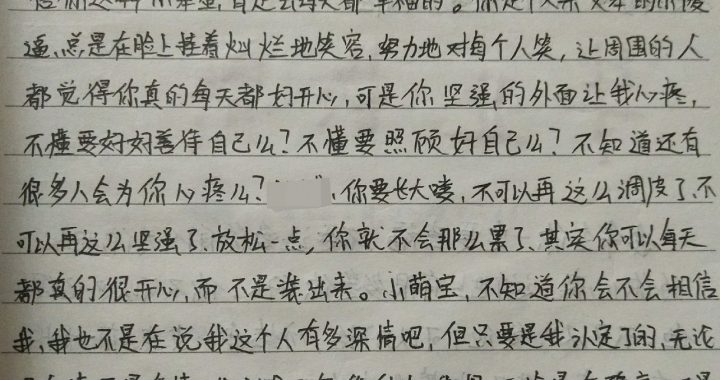 遥,总是在脸上挂着灿烂地笑容,努力地对每个人笑,让周围的人
都觉得你真的每天都好开心,可是你坚强的外面让我心疼,
不懂要好好善待自己么?不懂要照顾好自己么?不知道还有
很多人会为你心疼么?、你要长大喽,不可以再这么调皮了、不
可以再这么坚强了、放松一点,你就不会那么累了、其实你可以每天
都真的很开心,而不是装出来。小萌宝,不知道你会不会相信
我,我也不是在说我这个人有多深情吧,但只要是我认定了的,无论